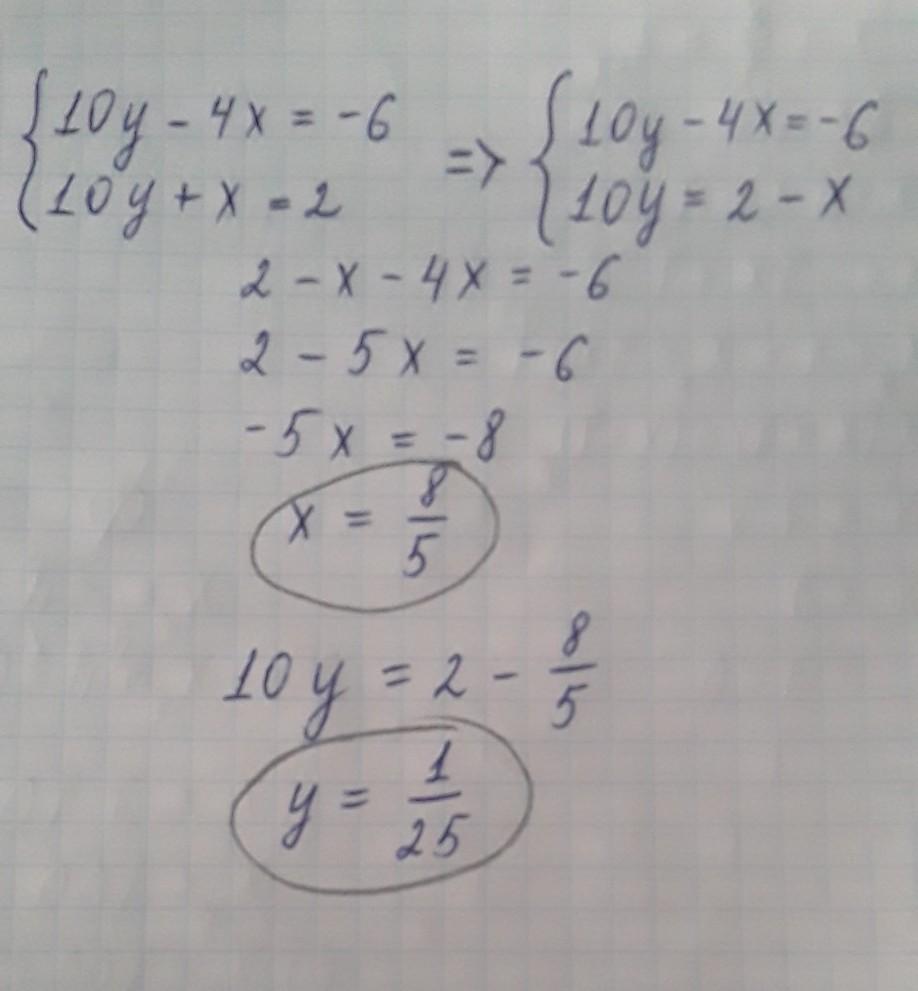 {10y - 4x = -6 => {10y - 4x = -6
{10y + x = 2 {10y = 2 - x
2 - x - 4x = -6
2 - 5x = -6
-5x = -8
x = 8/5
10y = 2 - 8/5
y = 1/25